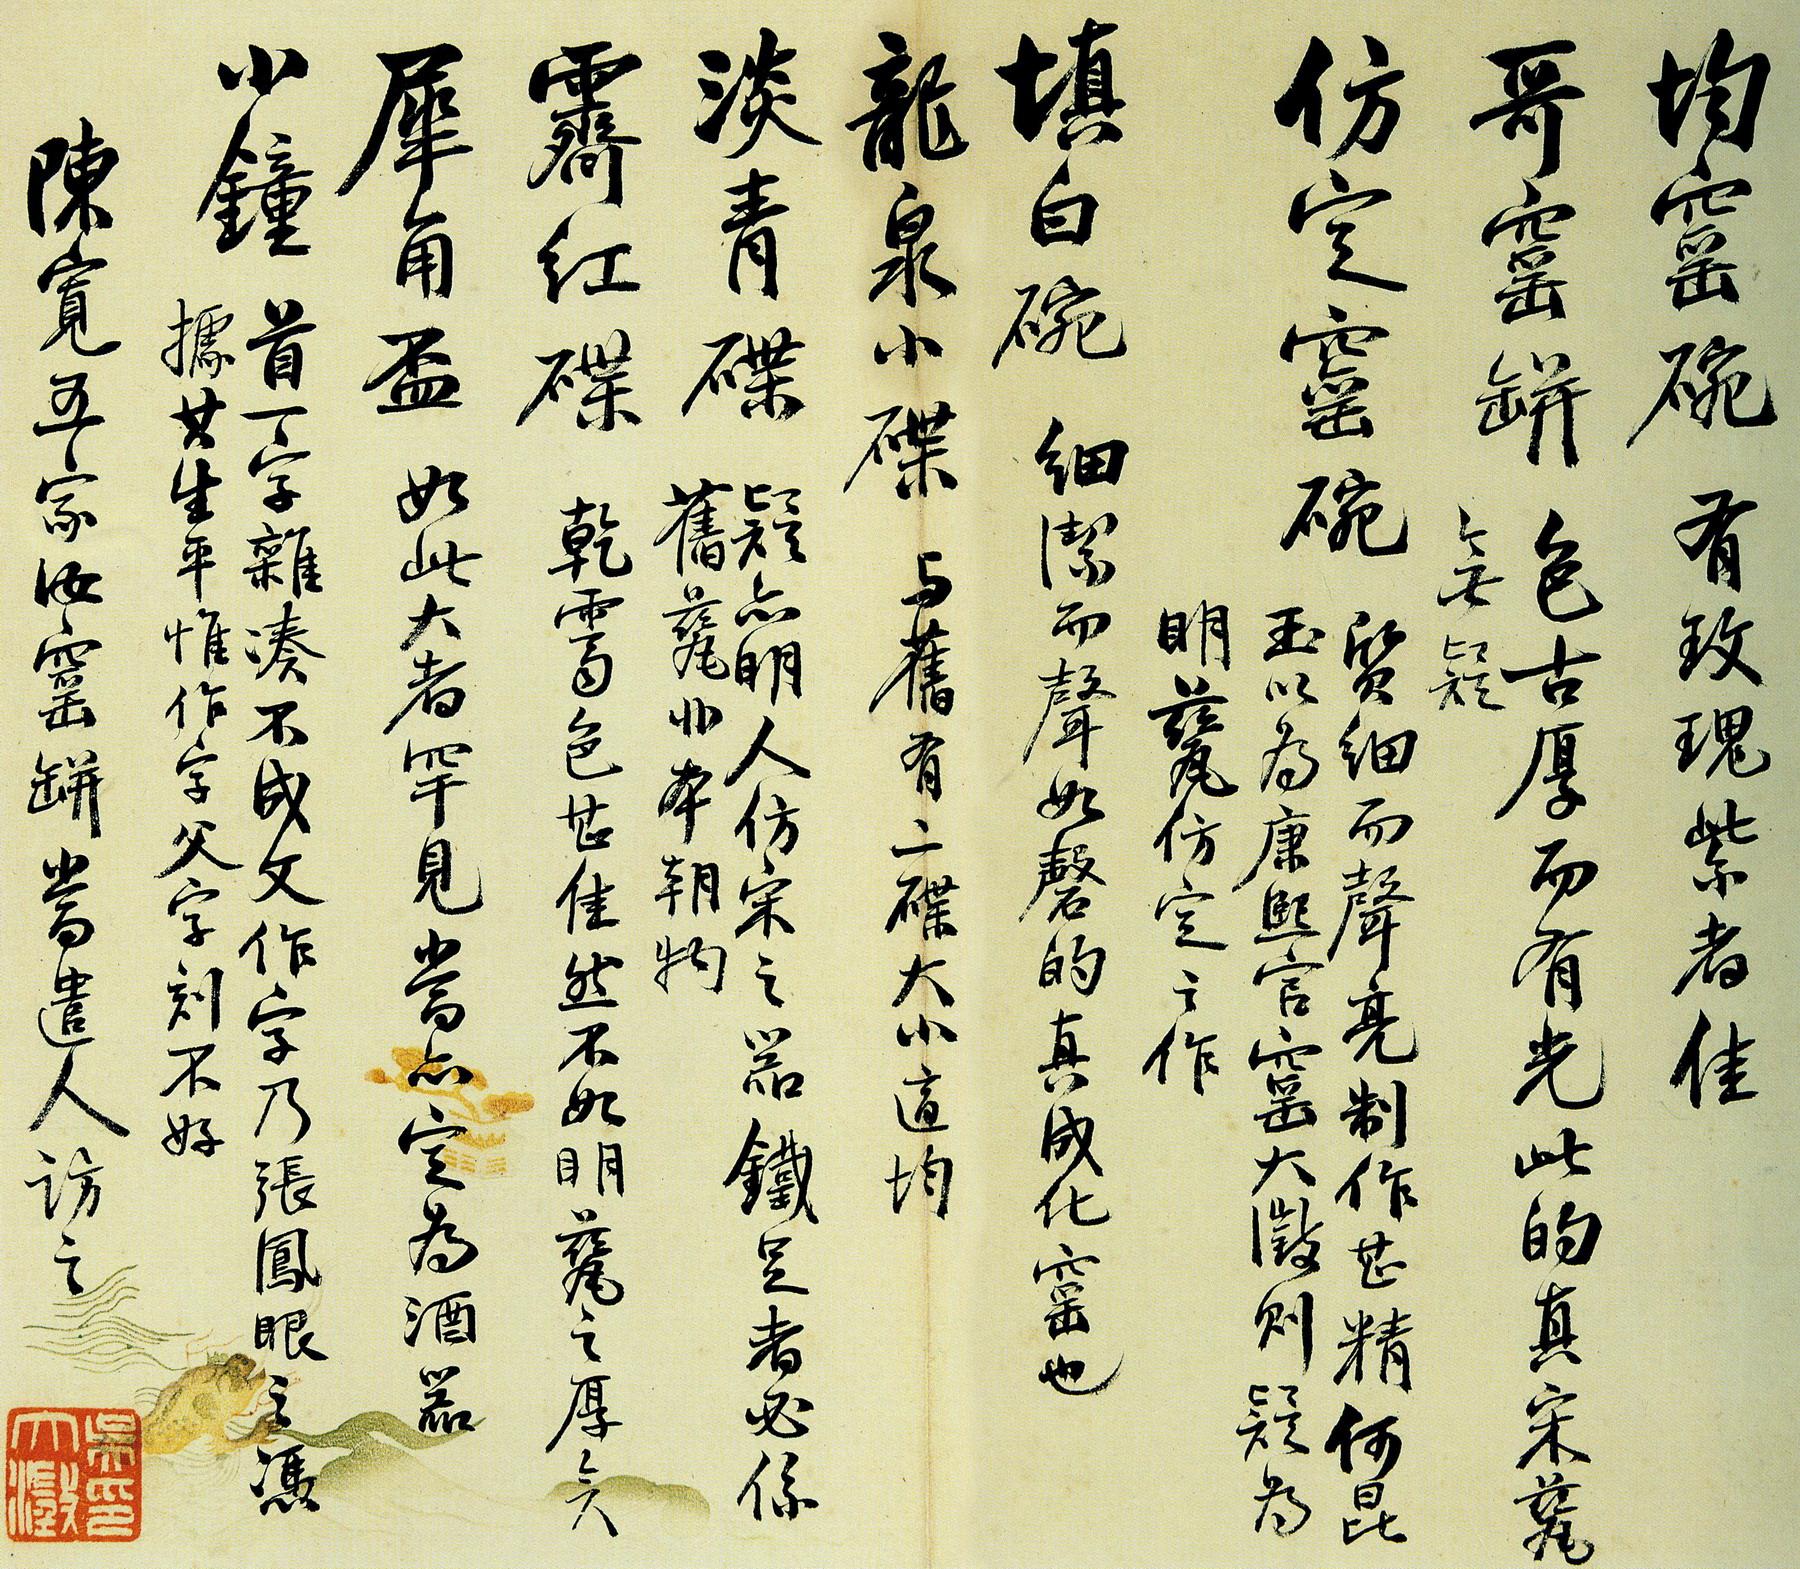 均窑碗　有玫瑰紫者佳
哥窑缾　色古厚而有光此的真宋甆
無疑
仿定窑碗　質細而聲亮制作甚精何昆
玉以為康熙官窑大澂則疑為
明甆仿定之作
填白碗　細潔而聲如磬的真成化窑也
龍泉小碟　与舊有二碟大小適均
淡青碟　疑亦明人仿宋之器鐵足者必係
舊甆非本朝物
霽紅碟　乾霽色甚佳然不如明甆之厚矣
犀角盃　如此大者罕見當亦定為酒器
小鐘　首一字雜凑不成文作字乃張鳳眼之憑
據其生平惟作字父字刻不好
陳寬五家汝窑缾當遣人訪之
吳大澂印